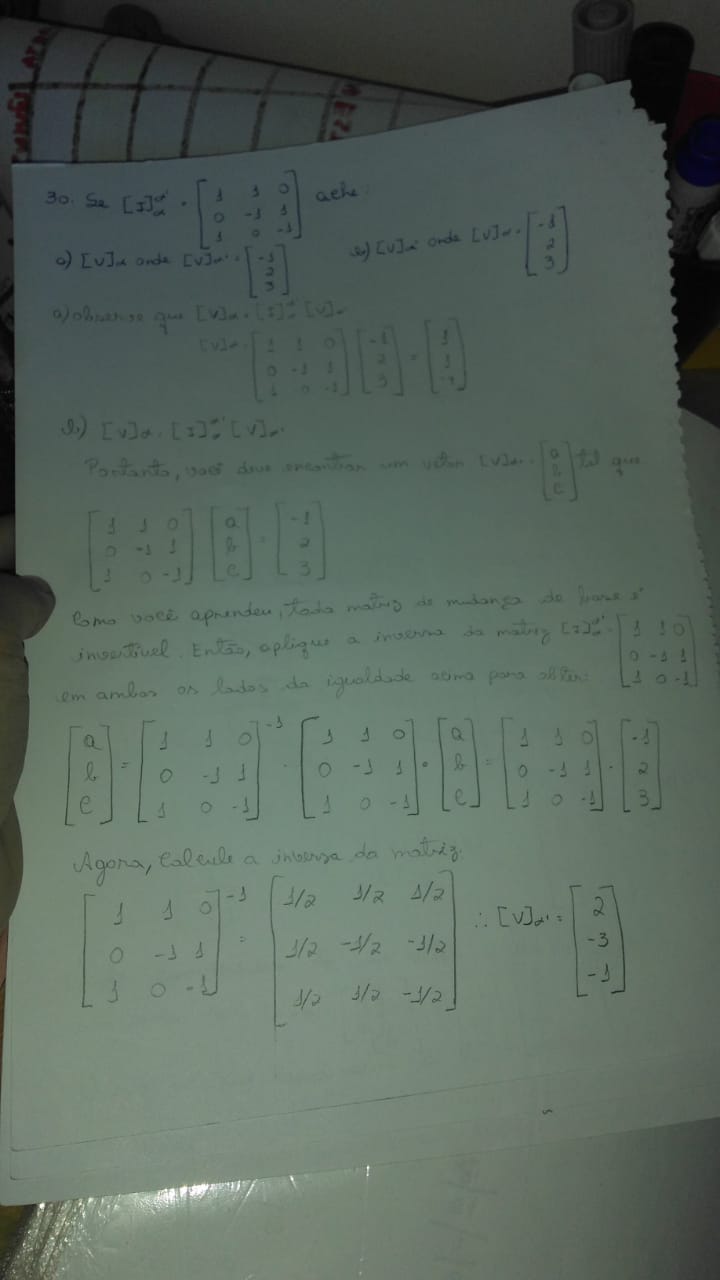 30. Se [I]α'α = [1 1 0; 0 -1 1; 1 0 -1] ache:
a) [V]α onde [V]α' = [-1; 2; 3] b) [V]α' onde [V]α = [-1; 2; 3]
a) observe que [V]α = [I]α'α [V]α'
[V]α = [1 1 0; 0 -1 1; 1 0 -1] [-1; 2; 3] =
b) [V]α = [I]α'α [V]α'
Portanto, você deve encontrar um vetor [V]α' = [a; b; c] tal que
[1 1 0; 0 -1 1; 1 0 -1] [a; b; c] = [-1; 2; 3]
Como você aprendeu, toda matriz de mudança de base é
invertível. Então, aplique a inversa da matriz [I]α'α = [1 1 0; 0 -1 1; 1 0 -1]
em ambos os lados da igualdade acima para obter:
[a; b; c] = [1 1 0; 0 -1 1; 1 0 -1]-1 . [1 1 0; 0 -1 1; 1 0 -1] . [a; b; c] = [1 1 0; 0 -1 1; 1 0 -1] . [-1; 2; 3]
Agora, calcule a inversa da matriz:
[1 1 0; 0 -1 1; 1 0 -1]-1 = [1/2 1/2 1/2; 1/2 -1/2 -1/2; 1/2 1/2 -1/2] ∴ [V]α' = [2; -3; -1]